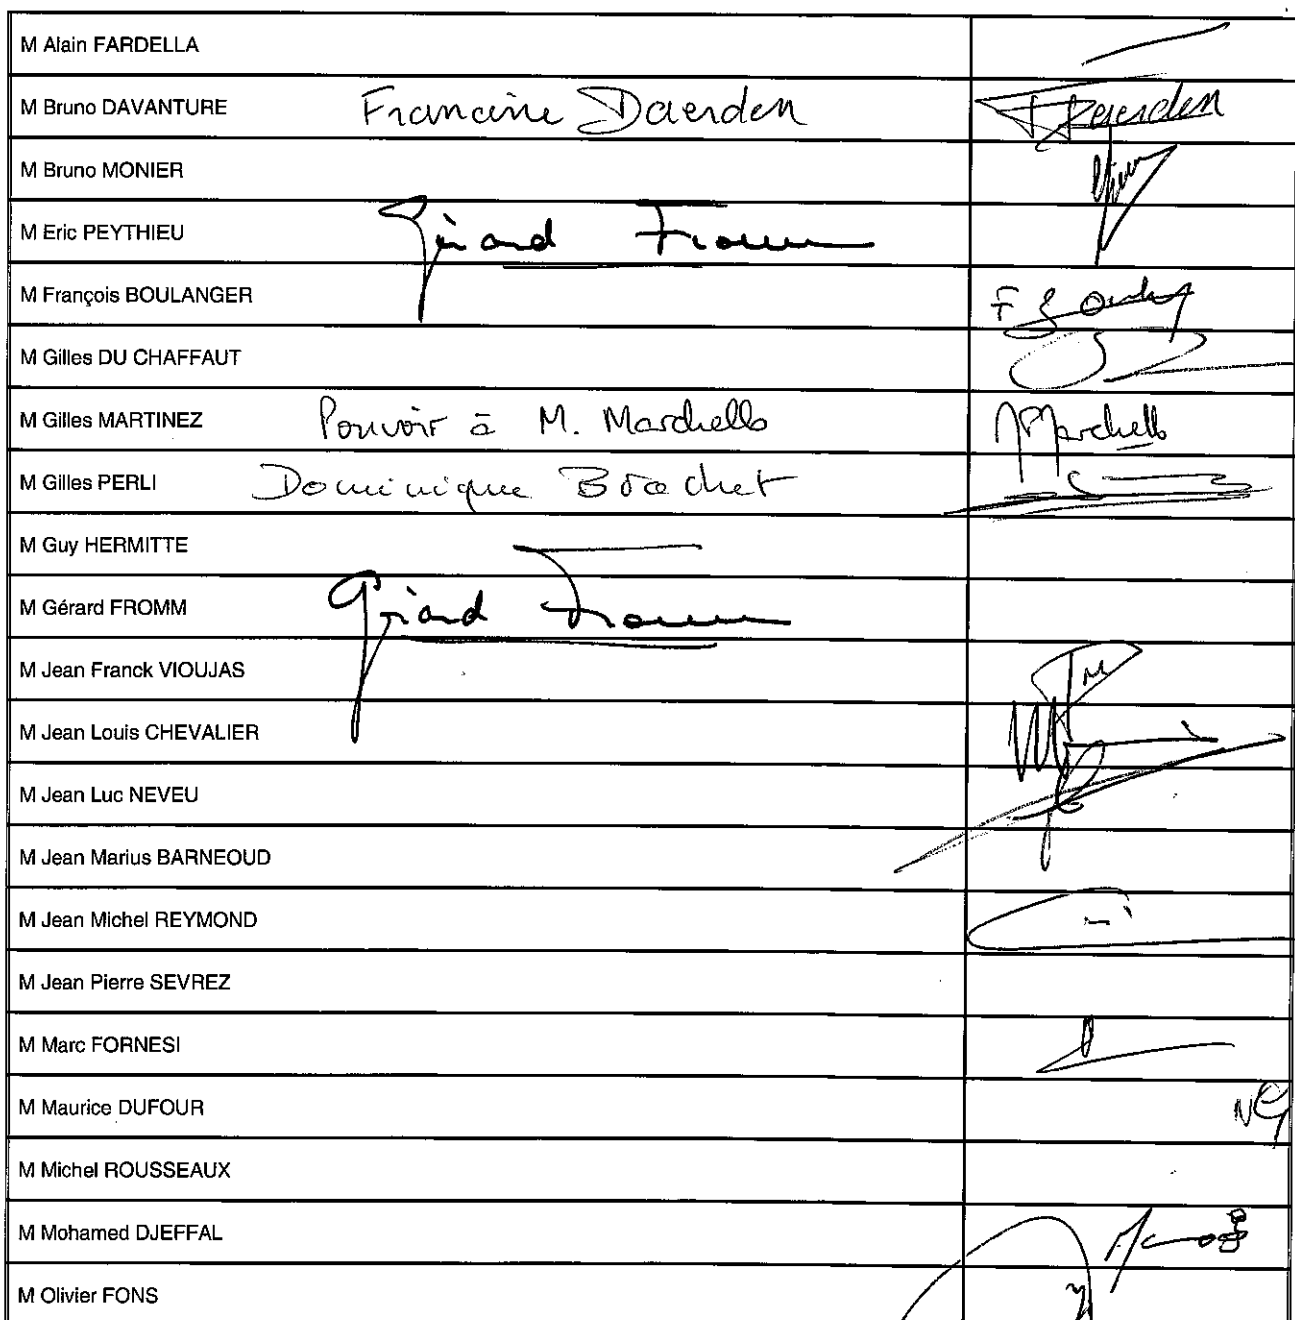 M Alain FARDELLA
M Bruno DAVANTURE Francine Daerden Daerden
M Bruno MONIER
M Eric PEYTHIEU Gérard Fromm
M François BOULANGER
M Gilles DU CHAFFAUT
M Gilles MARTINEZ Pouvoir à M. Marchello Marchello
M Gilles PERLI Dominique Brachet
M Guy HERMITTE
M Gérard FROMM Gérard Fromm
M Jean Franck VIOUJAS
M Jean Louis CHEVALIER
M Jean Luc NEVEU
M Jean Marius BARNEOUD
M Jean Michel REYMOND
M Jean Pierre SEVREZ
M Marc FORNESI
M Maurice DUFOUR
M Michel ROUSSEAUX
M Mohamed DJEFFAL
M Olivier FONS